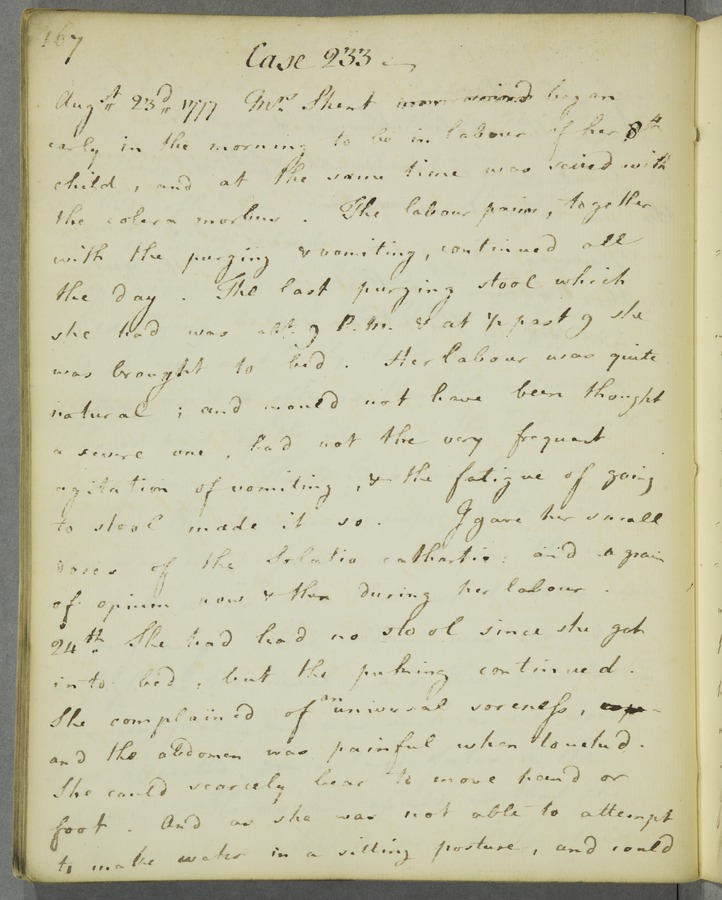 167
Case 233
Augst 23d 1777 Mrs Shent began
early in the morning to be in labour of her 8th
child, and at the same time was seized with
the colera morbus. The labour pains, together
with the purging & vomiting, continued all
the day. The last purging stool which
she had was abt. 9 P.M. & at ½ past 9 she
was brought to bed. Her labour was quite
natural; and would not have been thought
a severe one, had not the very frequent
agitation of vomiting, & the fatigue of going
to stool made it so. I gave her small
doses of the Solutio cathartic: and a grain
of opium now & then during her labour.
24th. She had had no stool since she got
into bed, but the puking continued.
She complained of an universal soreness,
and the abdomen was painful when touched.
She could scarcely bear to move hand or
foot. And as she was not able to attempt
to make water in a sitting posture, and could